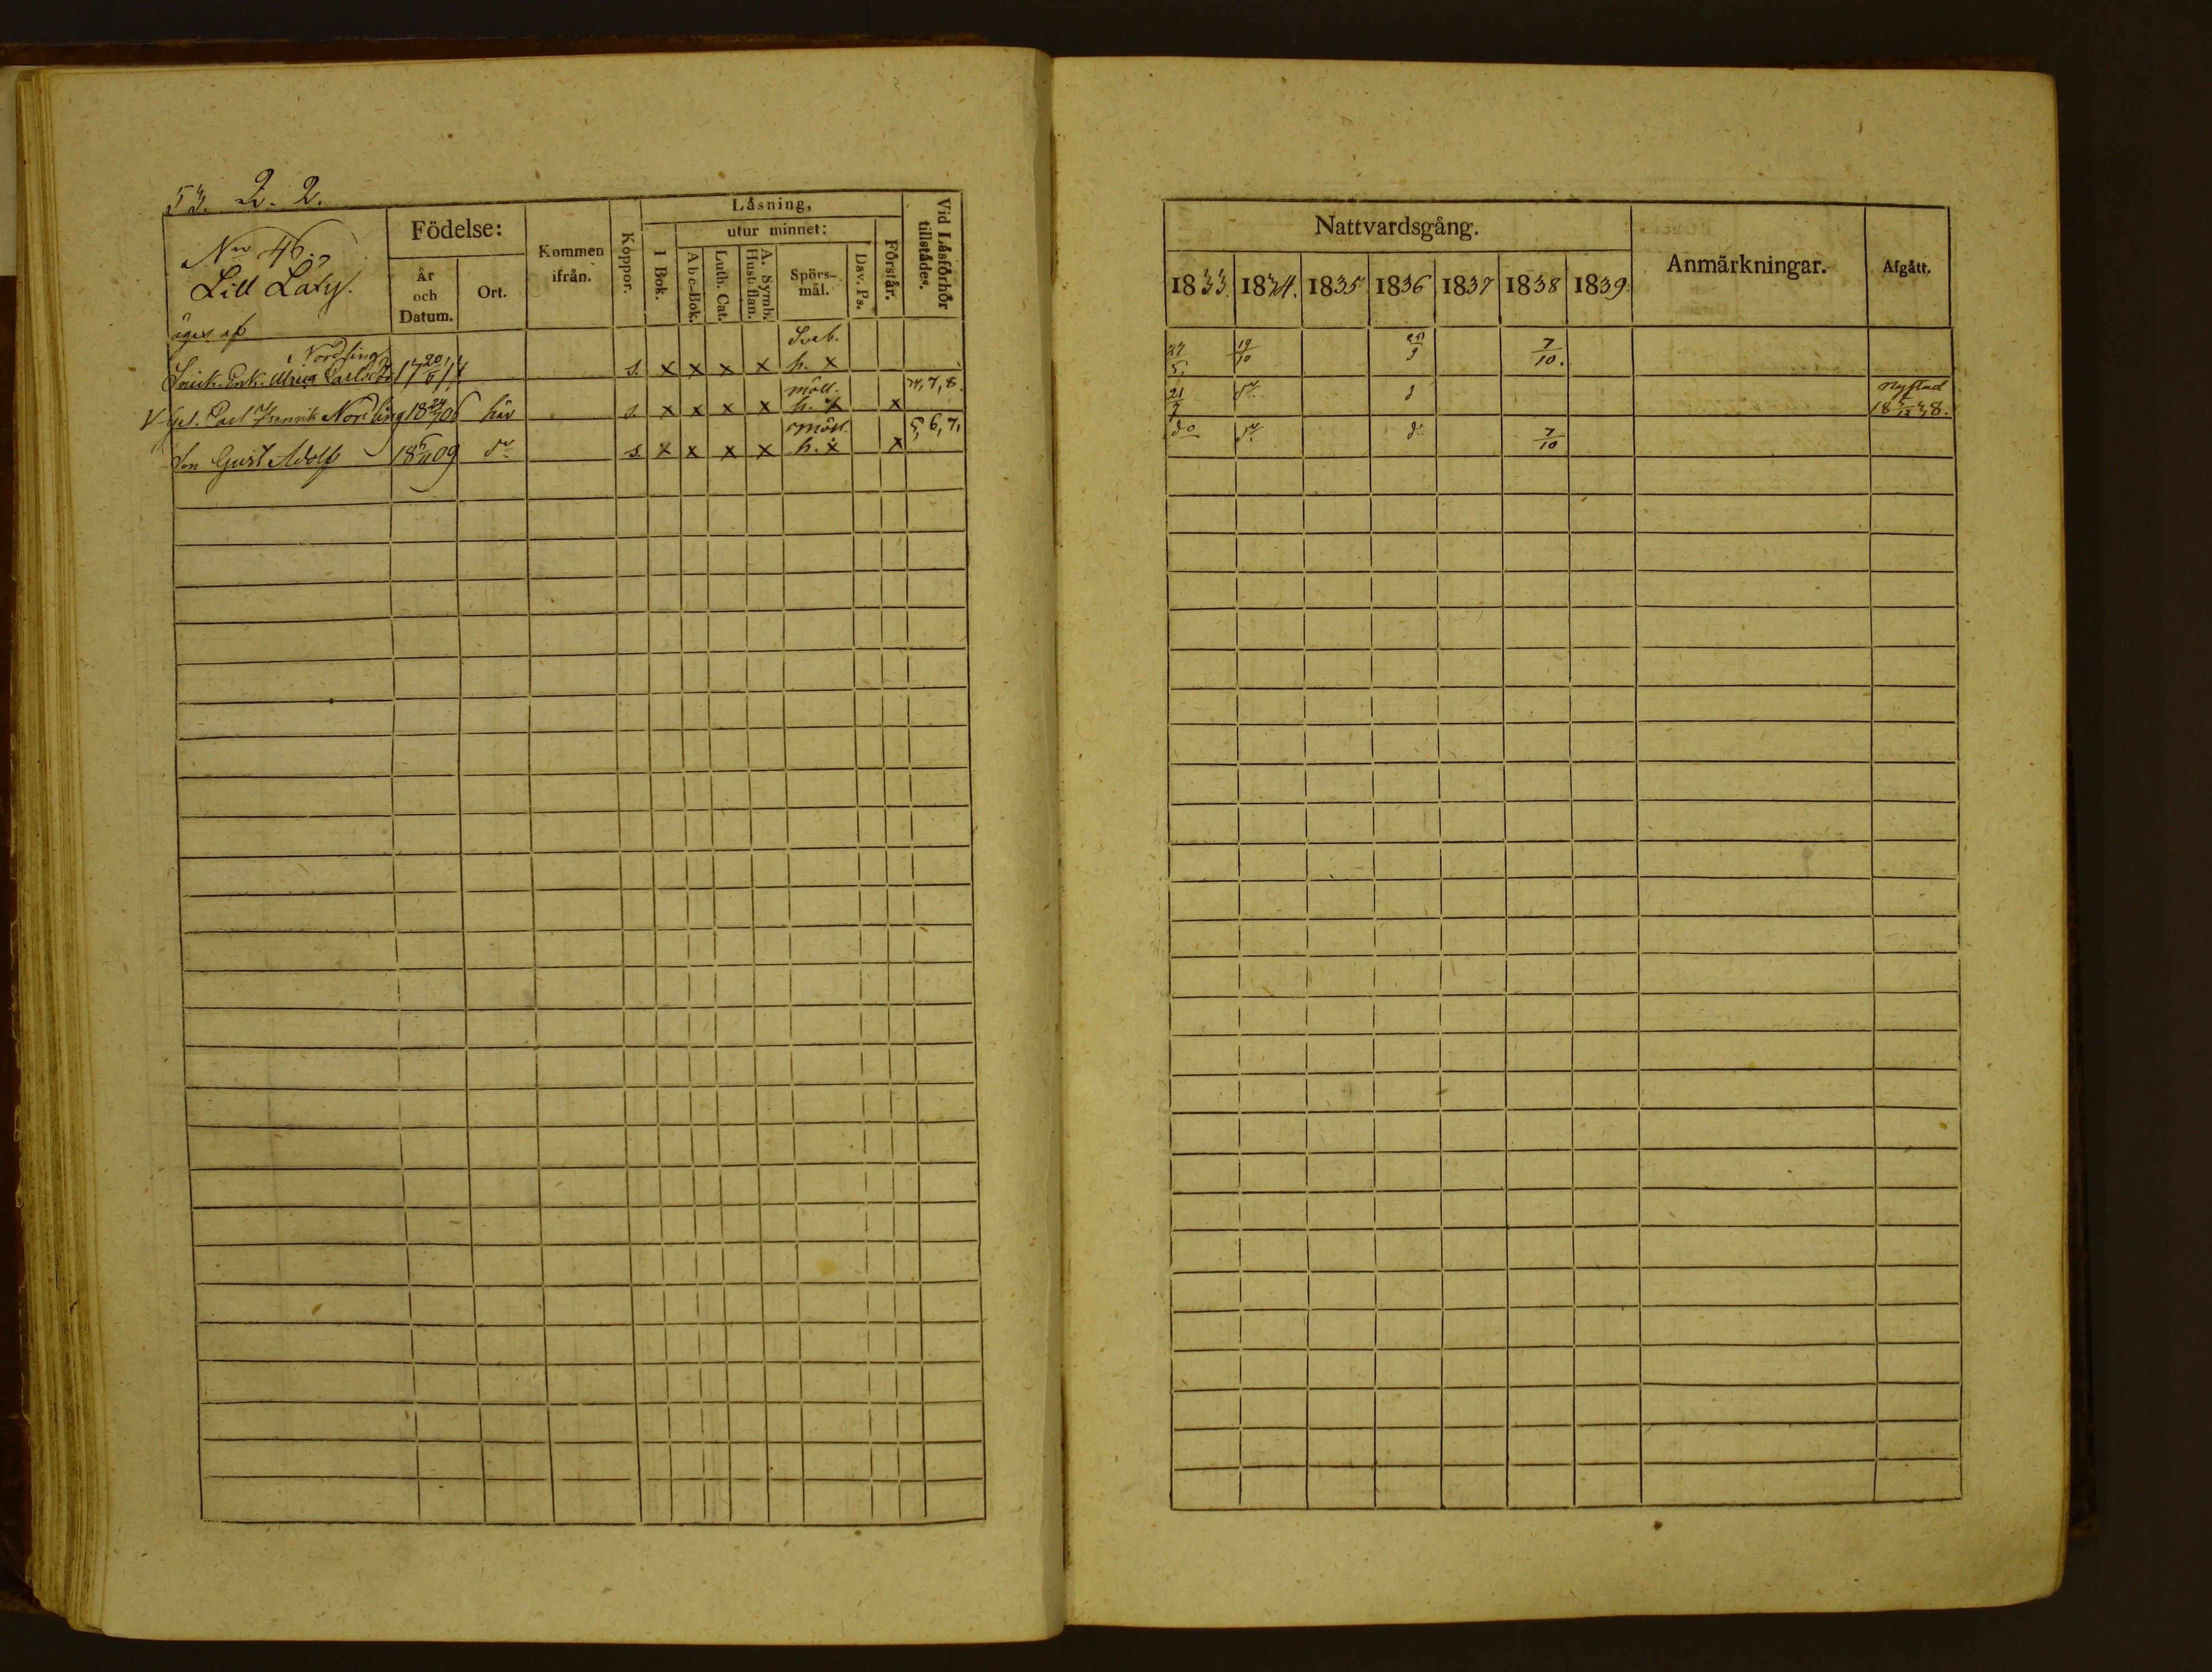 53. 2. 2.
No 46.
Lill Laty.
äges af
Födelse:
År och Datum.
Ort.
Kommen ifrån.
Koppor.
Läsning,
I Bok.
utur minnet:
Abc-Bok.
Luth. Cat.
A. Symb. Hust. flan.
Spörsmål.
Dav. Ps.
Förstår.
Vid Läsförhör tillstådes.
Nordling
Enk. Ulrica 17 20/5 74 s. x x x x Sveb. h. x
V Carl Henrik Nordling 18 24/ 06 här s. x x x x möll. h. x x 7, 8.
Son Gust Adolf 18 /11 09 do s. x x x x möll. h. x x 5, 6, 7,
Nattvardsgång.
1833. 1834. 1835 1836 1837 1838 1839.
Anmärkningar.
Afgått.
27/5. 19/10 7/10.
21/7 do d nystad
18 /12 38.
do do d 7/10